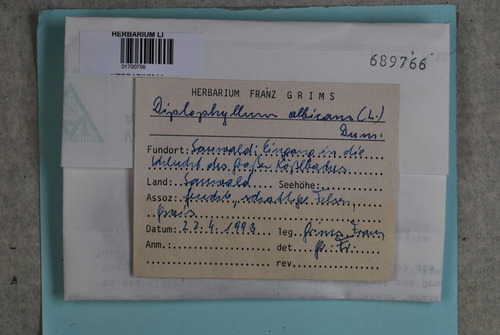 HERBARIUM LI
01700756
689766
HERBARIUM FRANZ GRIMS
Diplophyllum albicans (L.)
Dum.
Fundort: Sauwald: Eingang in die
Schlucht des großen Kößlbaches
Land: Sauwald Seehöhe:
Assoz: feuchte, schattige Felsen,
Gneis
Datum: 22.4.1999 leg. Grims Franz
Anm.: det. Gr. Fr.
rev.